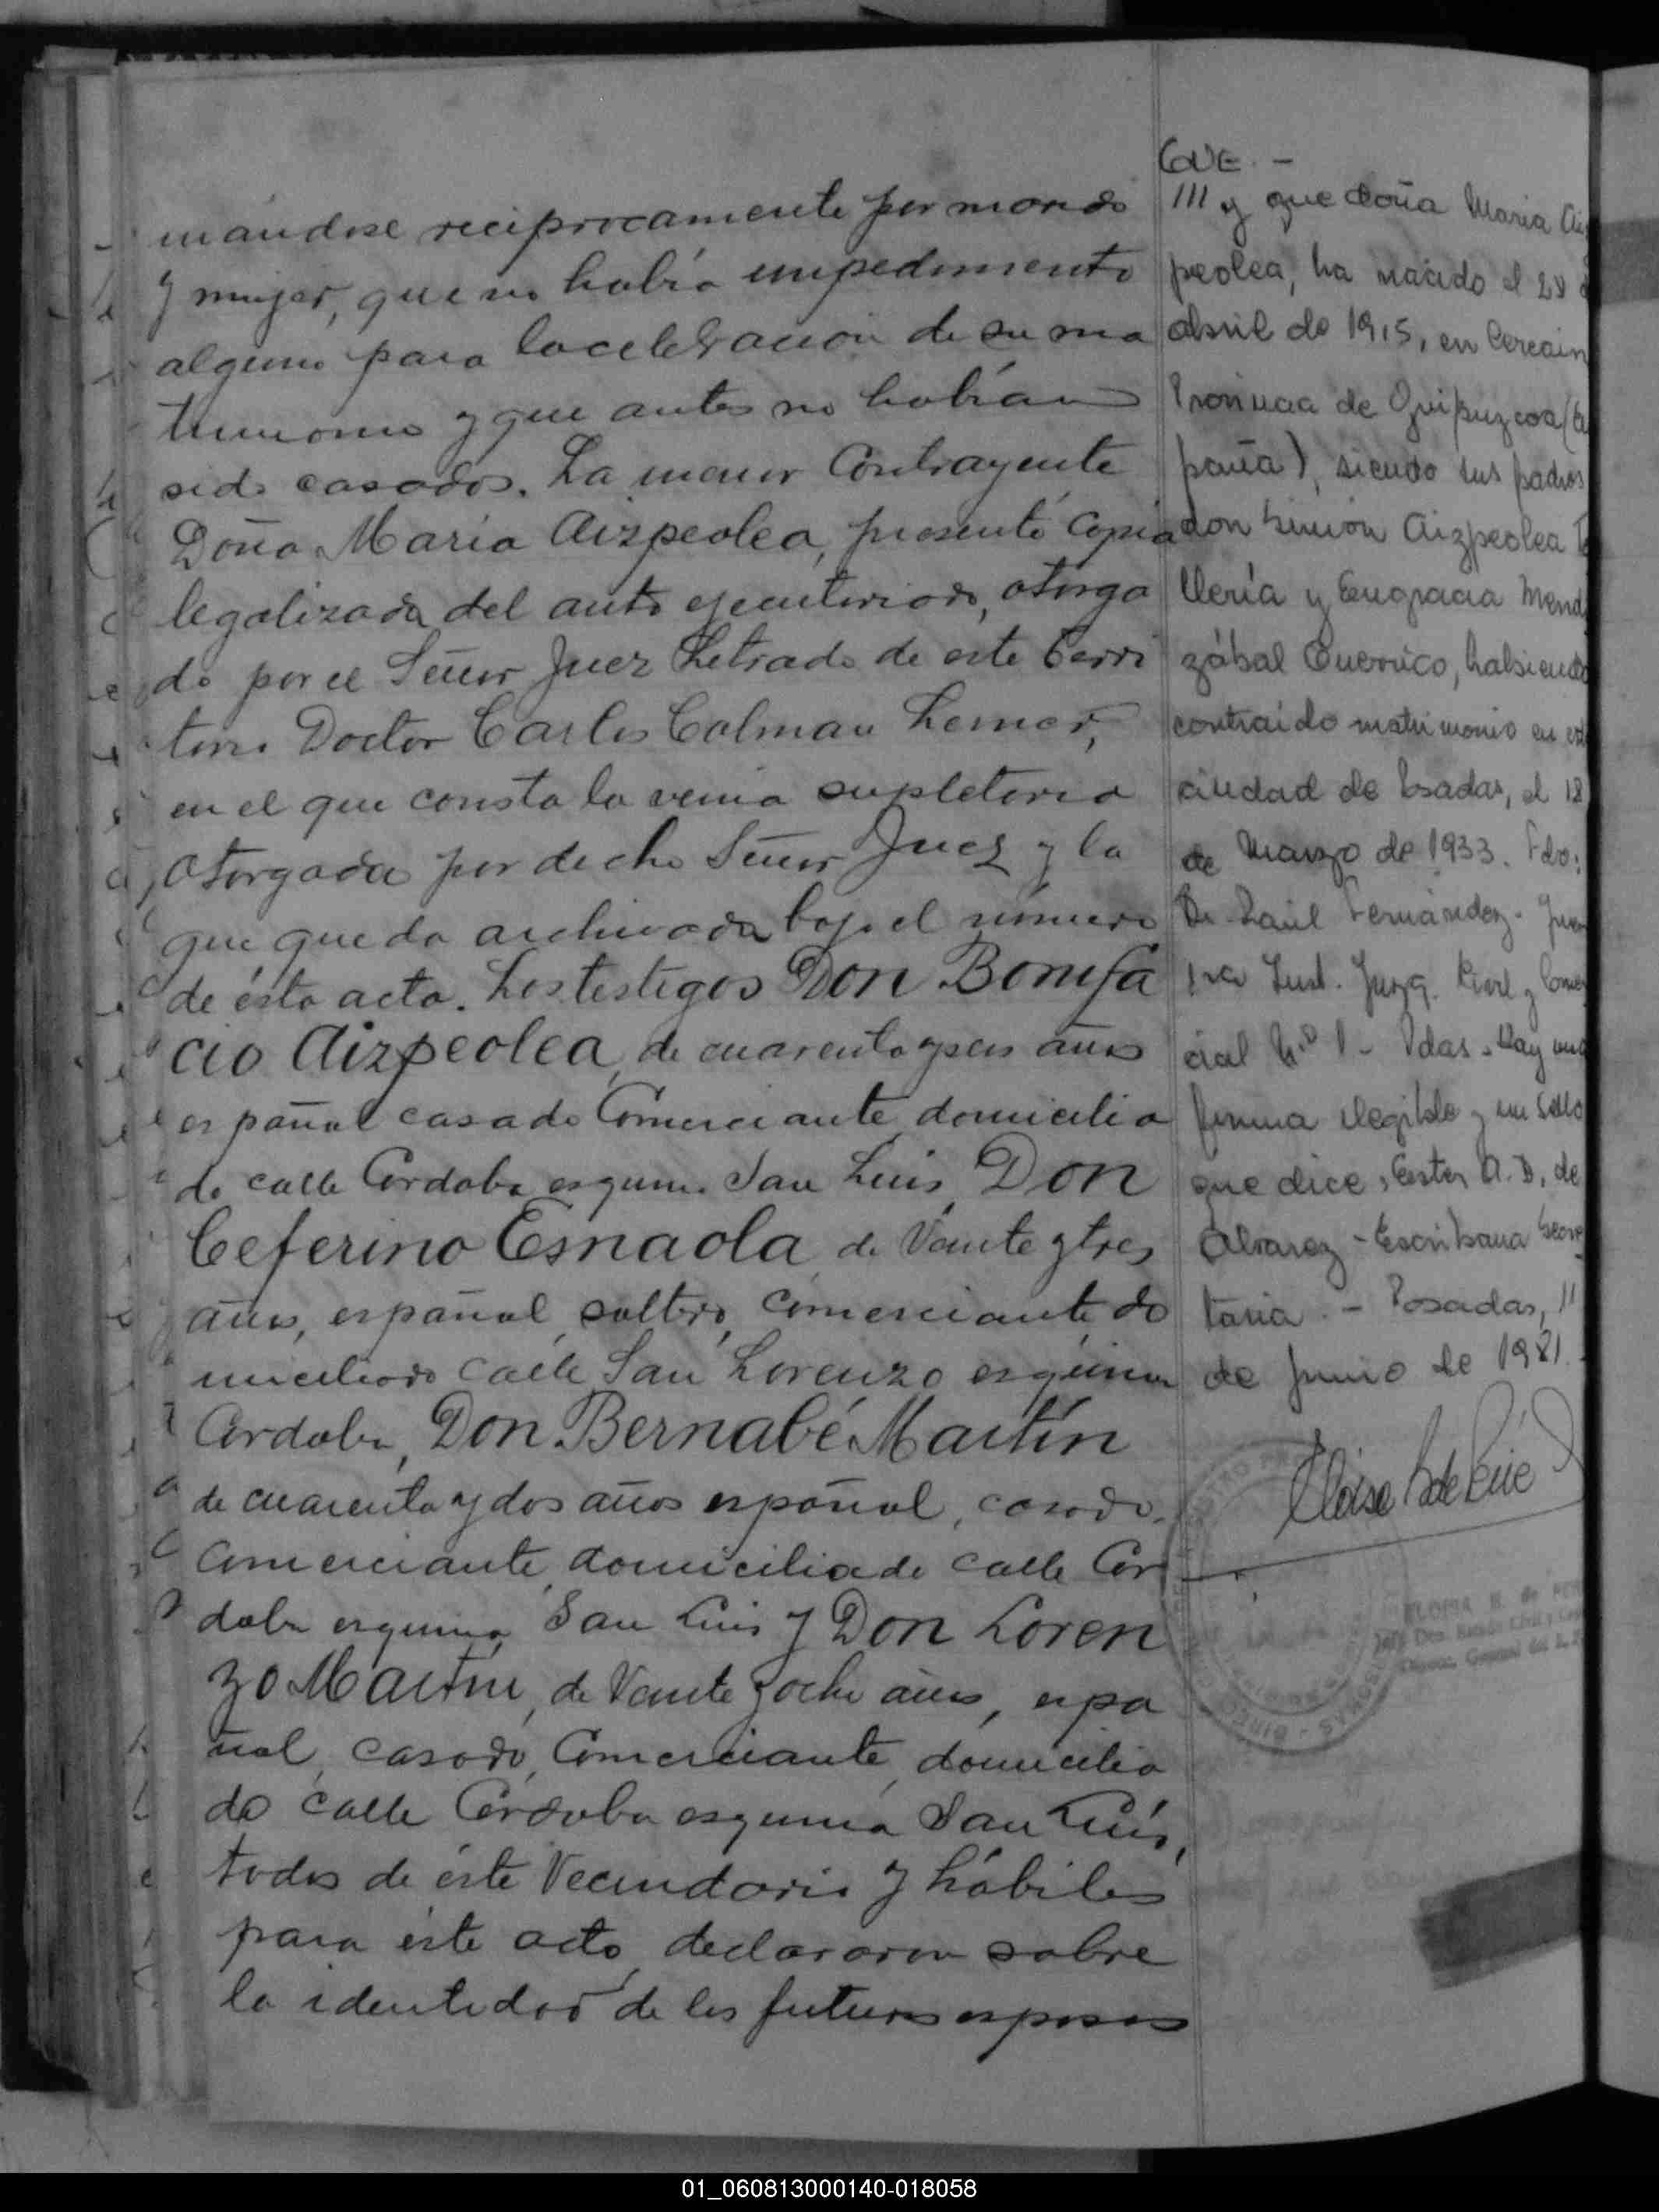 mándose reciprocamente por marido
y mujer, que no había impedimento
alguno para la celebración de su ma
trimonio y que antes no habían
sido casados. La menor Contrayente
Doña María Aizpeolea, presentó copia
legalizada del auto ejecutoriado, otorga
do por el Señor Juez Letrado de este Terri
torio Doctor Carlos Colman Lerner,
en el que consta la venia supletoria
otorgada por dicho Señor Juez y la
que queda archivada bajo el número
de ésta acta. Los testigos Don Bonifa
cio Aizpeolea, de cuarenta y seis años
español casado Comerciante, domicilia
do calle Cordoba esquina San Luis, Don
Ceferino Esnaola de Veinte y tres
años, español, soltero, comerciante, do
miciliado calle San Lorenzo esquina
Cordoba, Don Bernabé Martín
de cuarenta y dos años español, casado,
Comerciante, domiciliado calle Cór
doba esquina San Luis y Don Loren
zo Martín, de Veinte y ocho años, espa
ñol, casado, Comerciante, domicilia
do calle Córdoba esquina San Luis,
todos de éste Vecindario y hábiles
para éste acto, declararon sobre
la identidad de los futuros esposos
III y que doña Maria Aiz
peolea, ha nacido el 28 d
abril de 1915, en Cerain
Provincia de Guipuzcoa (Es
paña), siendo sus padres
don Simón Aizpeolea Te
llería y Engracia Mendi
zábal Guerrico, habiendo
contraído matrimonio en est
ciudad de Posadas, el 18
de Marzo de 1933. Fdo:
Dr. Raúl Fernández. Juez
1ra Inst. Juzg. Civil y Comer
cial Nº 1 - Pdas. Hay una
firma ilegible y un sello
que dice, Ester A. D. de
Alvarez - Escribana Secre
taria. - Posadas, 11
de Junio de 1981.
01_060813000140-018058